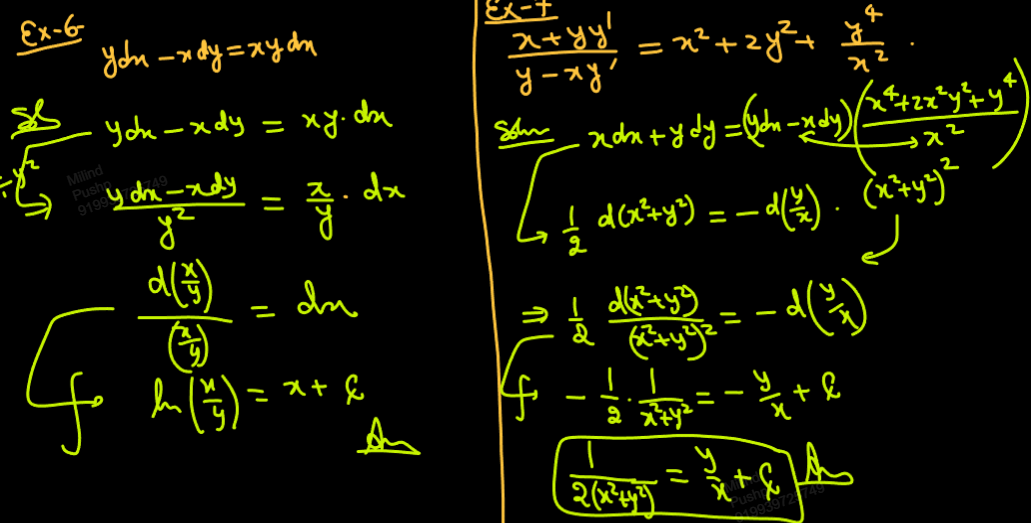 Ex-6
ydx - xdy = xydx
Sol
ydx - xdy = xy · dx
÷y²
⇒ (ydx - xdy)/y² = x/y · dx
d(x/y)/(x/y) = dx
∫ ln(x/y) = x + c
Ans
Ex-7
(x + yy')/(y - xy') = x² + 2y² + y⁴/x² .
Soln xdx + ydy = (ydx - xdy) ((x⁴ + 2x²y² + y⁴)/x²)
1/2 d(x² + y²) = - d(y/x) · (x² + y²)²
⇒ 1/2 d(x² + y²)/(x² + y²)² = - d(y/x)
∫ - 1/2 · 1/(x² + y²) = - y/x + c
1/(2(x² + y²)) = y/x + c Ans
Milind
Pushp